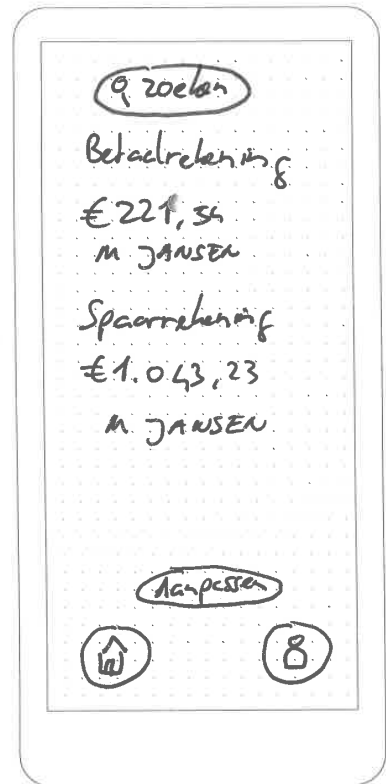 zoeken
Betaalrekening
€221,54
M JANSEN
Spaarrekening
€1.043,23
M. JANSEN
Aanpassen